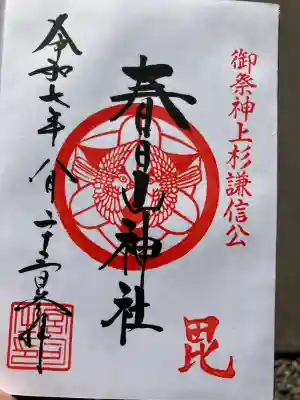 御祭神上杉謙信公
毘
春日山神社
令和七年八月二十三日奉拝